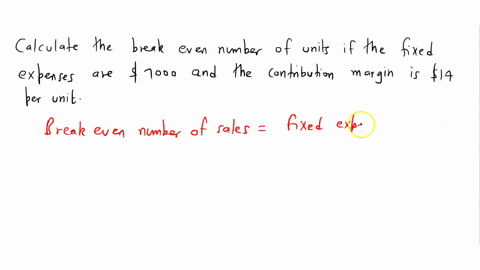 Calculate the break even number of units if the fixed
expenses are $ 7000 and the contribution margin is $14
per unit.
Break even number of sales = fixed exp